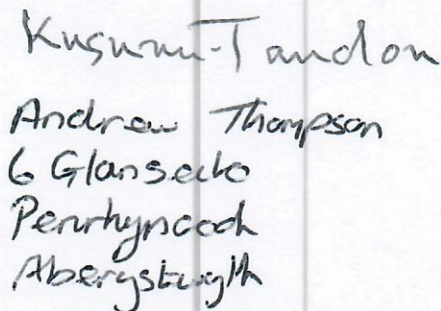 Kusum Tandon
Andrew Thompson
6 Glanseilo
Penrhyncoch
Aberystwyth